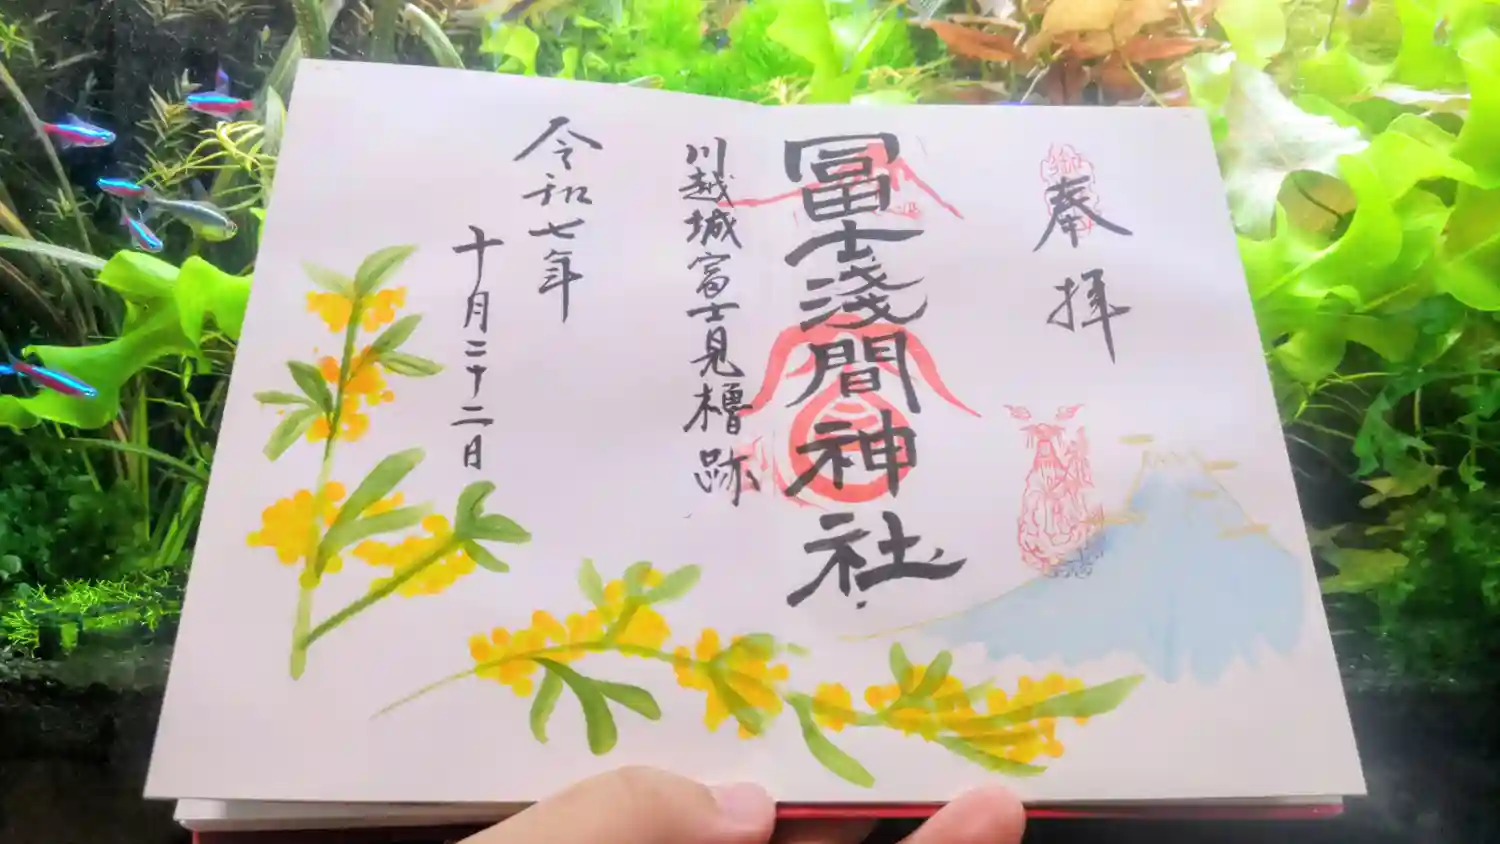 奉拝
冨士浅間神社
川越城富士見櫓跡
令和七年
十月二十二日